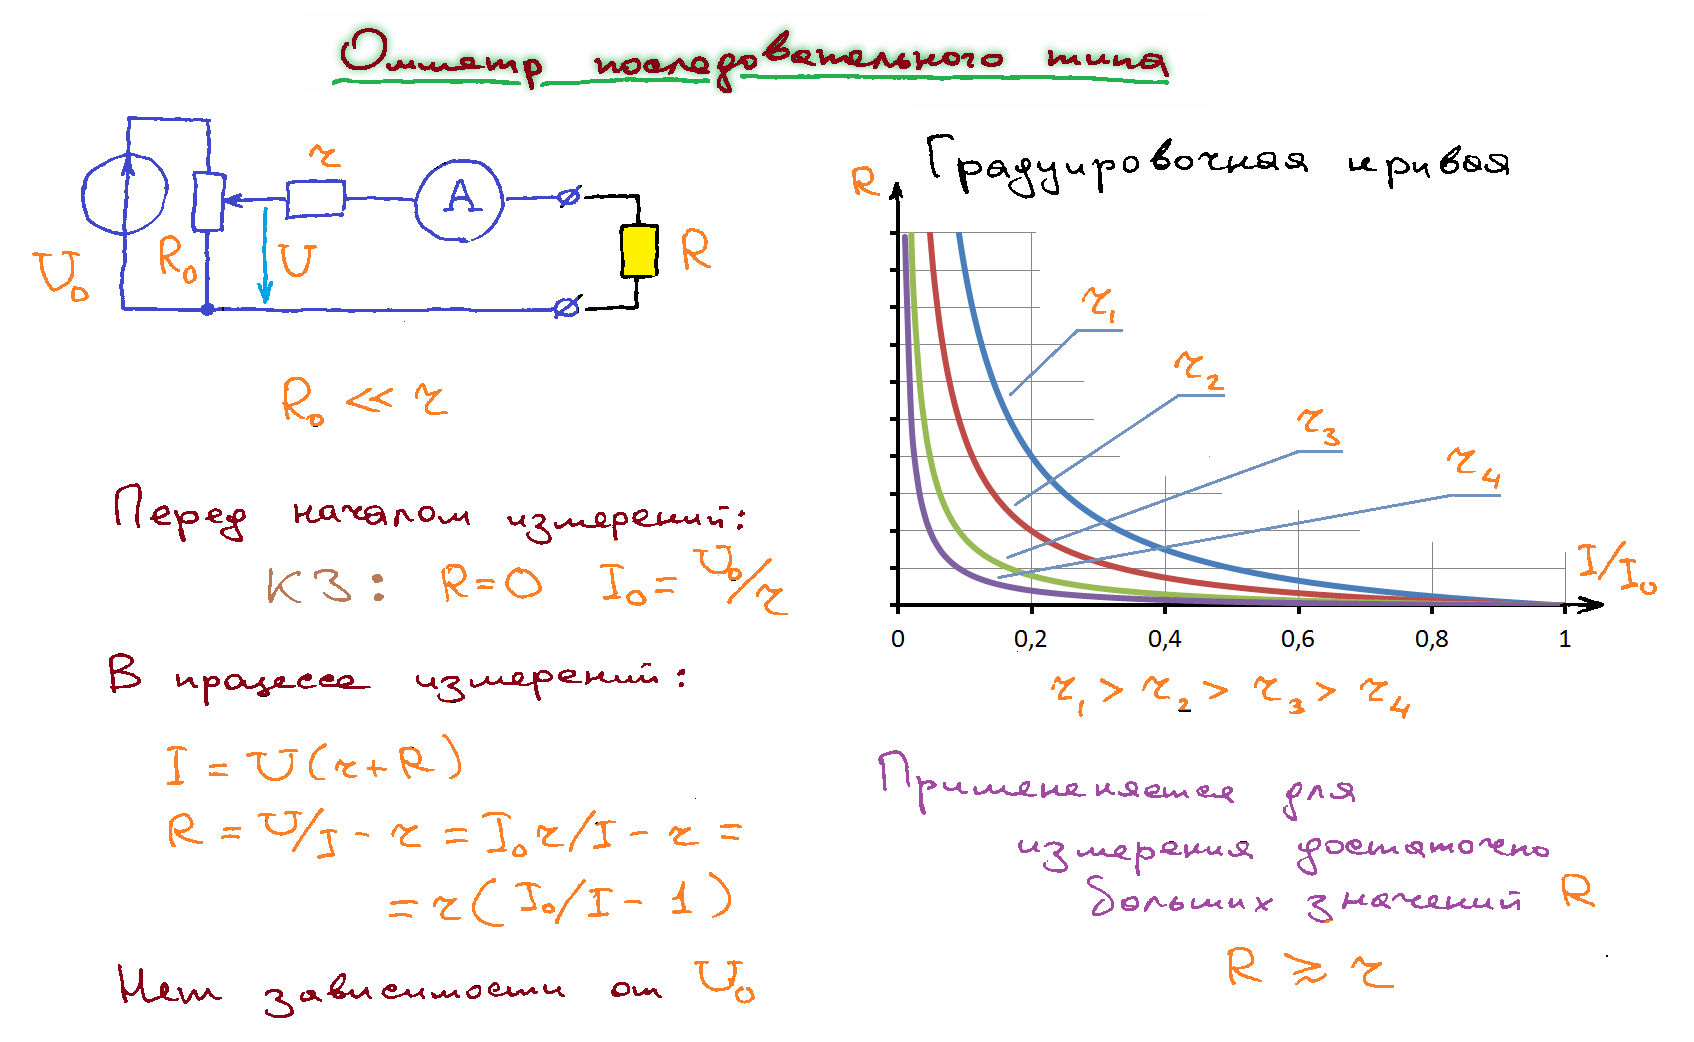 Омметр последовательного типа
U₀
R₀
r
U
A
R
R₀ << r
Перед началом измерений:
КЗ: R=0 I₀=U₀/r
В процессе измерений:
I = U(r+R)
R = U/I - r = I₀r/I - r =
= r(I₀/I - 1)
Нет зависимости от U₀
Градуировочная кривая
R
r₁
r₂
r₃
r₄
I/I₀
0 0,2 0,4 0,6 0,8 1
r₁ > r₂ > r₃ > r₄
Примененяется для
измерения достаточно
больших значений R
R ≳ r